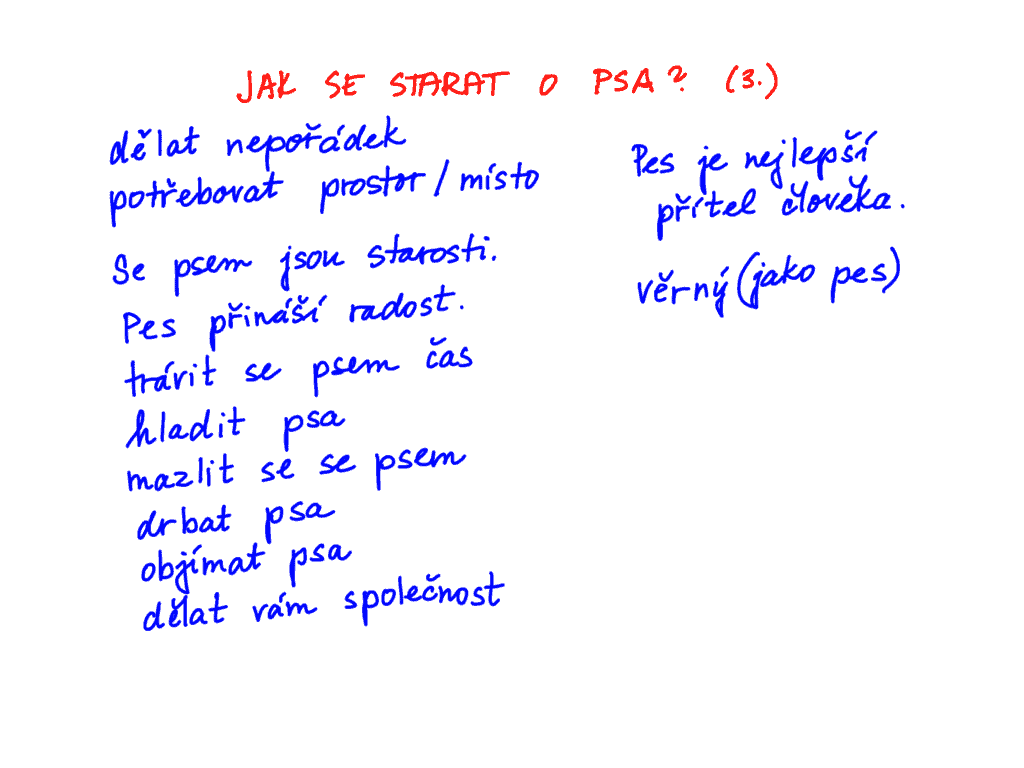 JAK SE STARAT O PSA? (3.)
dělat nepořádek
potřebovat prostor / místo
Se psem jsou starosti.
Pes přináší radost.
trávit se psem čas
hladit psa
mazlit se se psem
drbat psa
objímat psa
dělat vám společnost
Pes je nejlepší
přítel člověka.
věrný (jako pes)